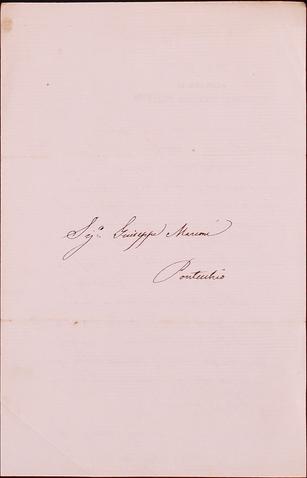 Sigr. Giuseppe Marconi
Pontecchio